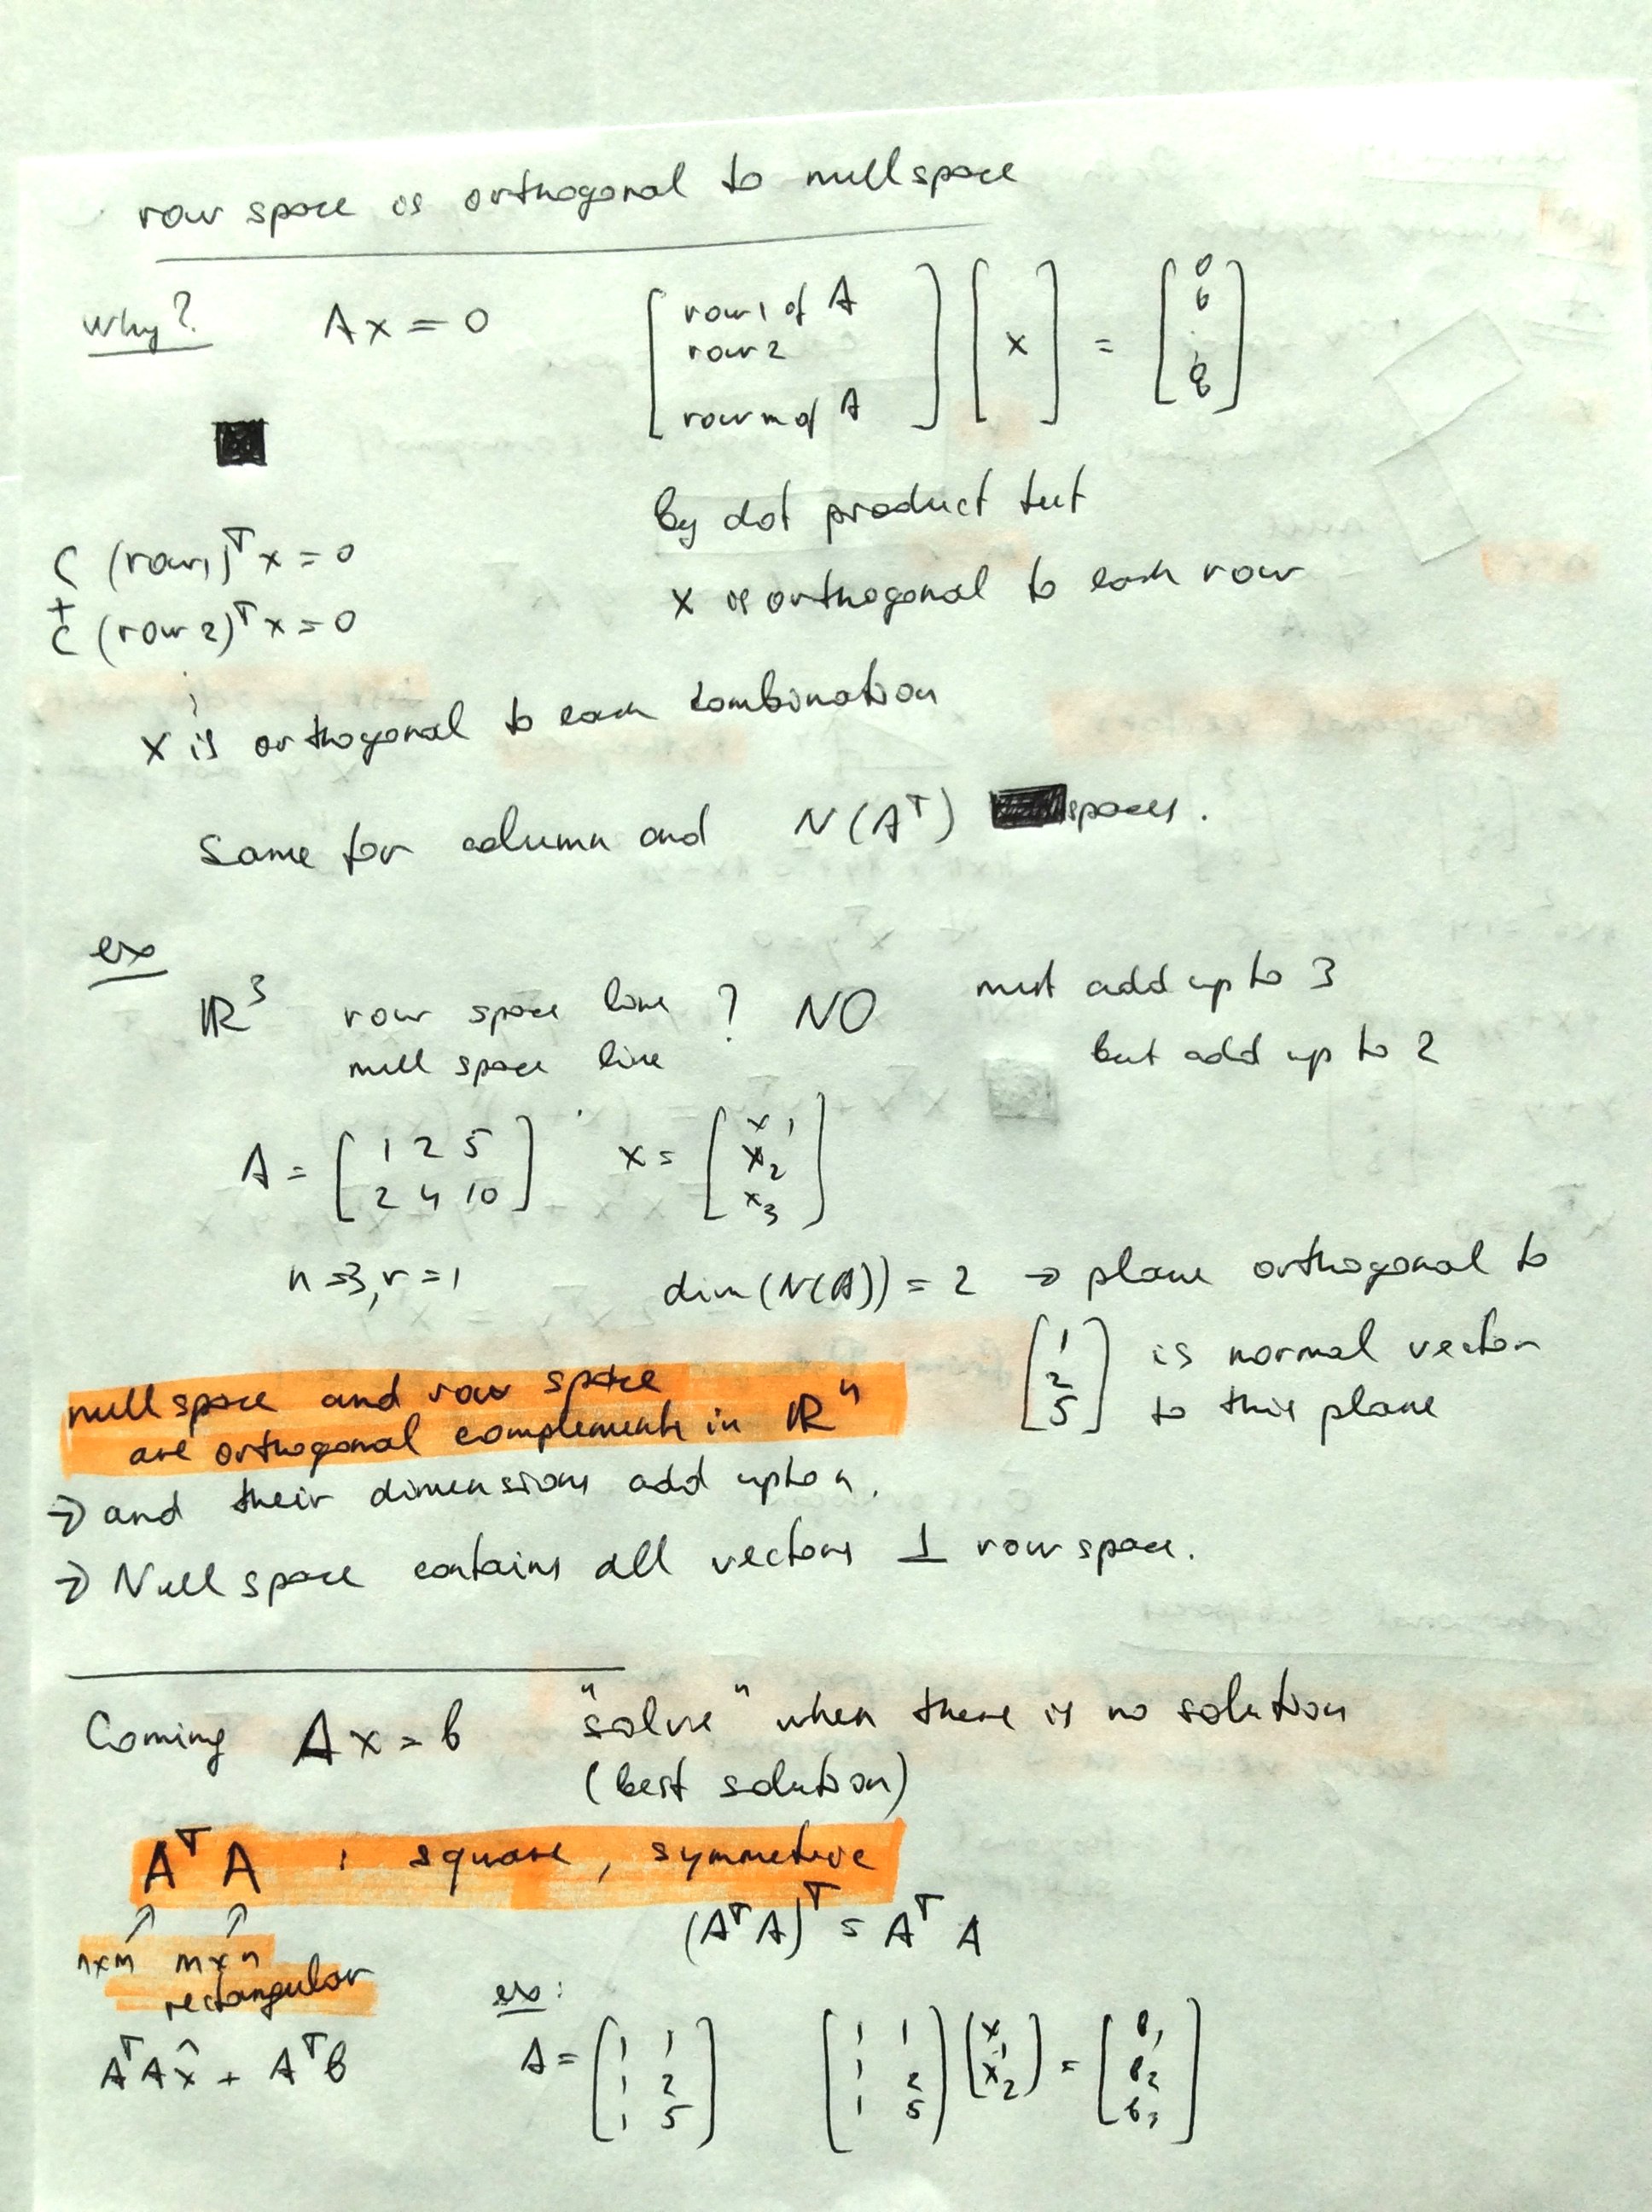 row space is orthogonal to nullspace
Why? Ax = 0 [row 1 of A row 2 row m of A] [x] = [0 0 ⋮ 0]
by dot product test
C (row 1)ᵀ x = 0
x is orthogonal to each row
+
C (row 2)ᵀ x = 0
⋮
x is orthogonal to each combination
Same for column and N(Aᵀ) spaces.
ex
ℝ³ row space line ? NO must add up to 3
null space line but add up to 2
A = [1 2 5 2 4 10] x = [x₁ x₂ x₃]
n = 3, r = 1 dim(N(A)) = 2 → plane orthogonal to
[1 2 5] is normal vector
to this plane
nullspace and row space
are orthogonal complements in ℝⁿ
→ and their dimensions add up to n.
→ Null space contains all vectors ⊥ row space.
Coming Ax = b "solve" when there is no solution
(best solution)
AᵀA : square, symmetric
(AᵀA)ᵀ = AᵀA
n×m m×n
rectangular
ex:
AᵀAx̂ = Aᵀb A = [1 1 1 2 1 5] [1 1 1 2 1 5] [x₁ x₂] = [b₁ b₂ b₃]